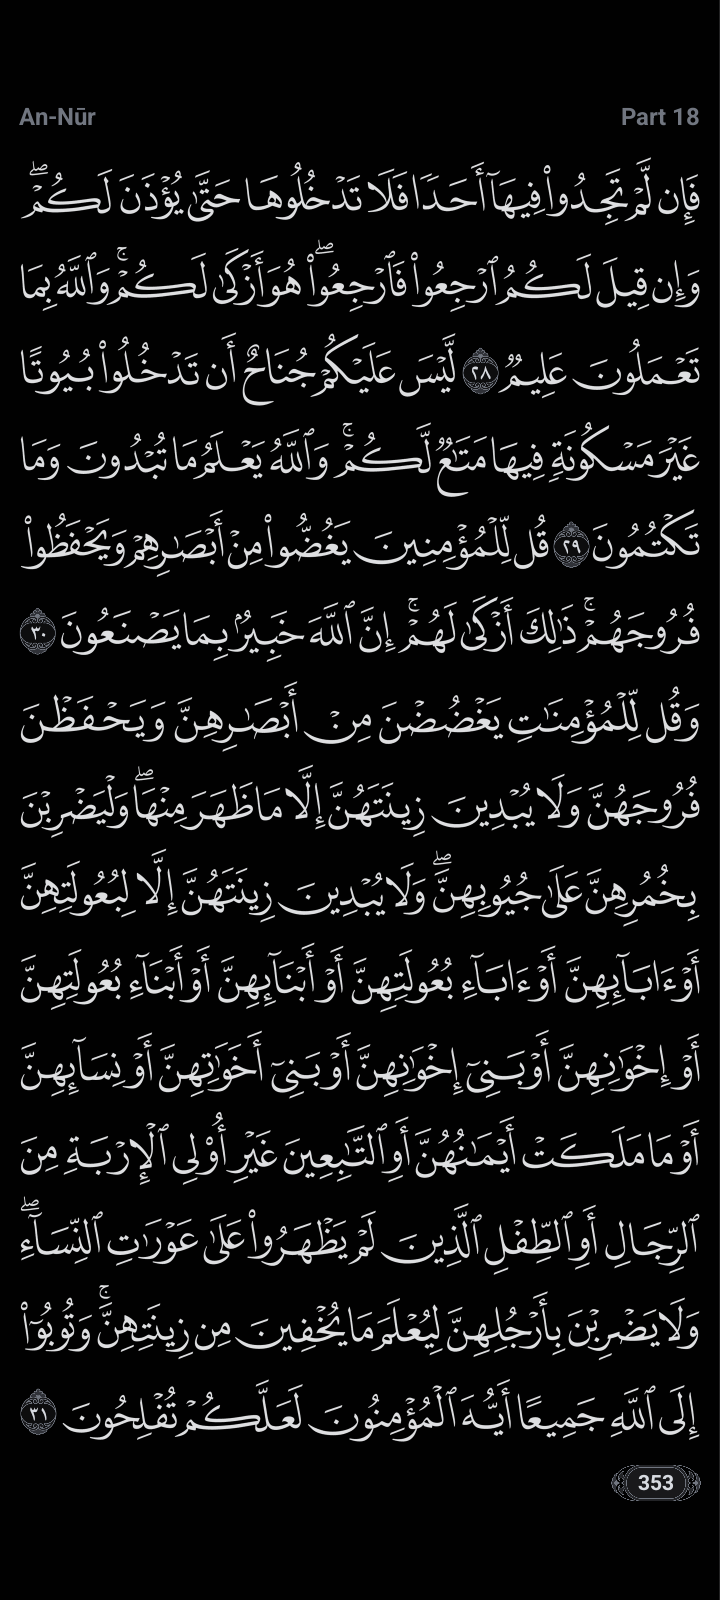 An-Nūr Part 18
فَإِن لَّمْ تَجِدُوا۟ فِيهَآ أَحَدًا فَلَا تَدْخُلُوهَا حَتَّىٰ يُؤْذَنَ لَكُمْ ۖ
وَإِن قِيلَ لَكُمُ ٱرْجِعُوا۟ فَٱرْجِعُوا۟ ۖ هُوَ أَزْكَىٰ لَكُمْ ۚ وَٱللَّهُ بِمَا
تَعْمَلُونَ عَلِيمٌ ٢٨ لَّيْسَ عَلَيْكُمْ جُنَاحٌ أَن تَدْخُلُوا۟ بُيُوتًا
غَيْرَ مَسْكُونَةٍ فِيهَا مَتَـٰعٌ لَّكُمْ ۚ وَٱللَّهُ يَعْلَمُ مَا تُبْدُونَ وَمَا
تَكْتُمُونَ ٢٩ قُل لِّلْمُؤْمِنِينَ يَغُضُّوا۟ مِنْ أَبْصَـٰرِهِمْ وَيَحْفَظُوا۟
فُرُوجَهُمْ ۚ ذَٰلِكَ أَزْكَىٰ لَهُمْ ۚ إِنَّ ٱللَّهَ خَبِيرٌۢ بِمَا يَصْنَعُونَ ٣٠
وَقُل لِّلْمُؤْمِنَـٰتِ يَغْضُضْنَ مِنْ أَبْصَـٰرِهِنَّ وَيَحْفَظْنَ
فُرُوجَهُنَّ وَلَا يُبْدِينَ زِينَتَهُنَّ إِلَّا مَا ظَهَرَ مِنْهَا ۖ وَلْيَضْرِبْنَ
بِخُمُرِهِنَّ عَلَىٰ جُيُوبِهِنَّ ۖ وَلَا يُبْدِينَ زِينَتَهُنَّ إِلَّا لِبُعُولَتِهِنَّ
أَوْ ءَابَآئِهِنَّ أَوْ ءَابَآءِ بُعُولَتِهِنَّ أَوْ أَبْنَآئِهِنَّ أَوْ أَبْنَآءِ بُعُولَتِهِنَّ
أَوْ إِخْوَٰنِهِنَّ أَوْ بَنِىٓ إِخْوَٰنِهِنَّ أَوْ بَنِىٓ أَخَوَٰتِهِنَّ أَوْ نِسَآئِهِنَّ
أَوْ مَا مَلَكَتْ أَيْمَـٰنُهُنَّ أَوِ ٱلتَّـٰبِعِينَ غَيْرِ أُو۟لِى ٱلْإِرْبَةِ مِنَ
ٱلرِّجَالِ أَوِ ٱلطِّفْلِ ٱلَّذِينَ لَمْ يَظْهَرُوا۟ عَلَىٰ عَوْرَٰتِ ٱلنِّسَآءِ ۖ
وَلَا يَضْرِبْنَ بِأَرْجُلِهِنَّ لِيُعْلَمَ مَا يُخْفِينَ مِن زِينَتِهِنَّ ۚ وَتُوبُوٓا۟
إِلَى ٱللَّهِ جَمِيعًا أَيُّهَ ٱلْمُؤْمِنُونَ لَعَلَّكُمْ تُفْلِحُونَ ٣١
353